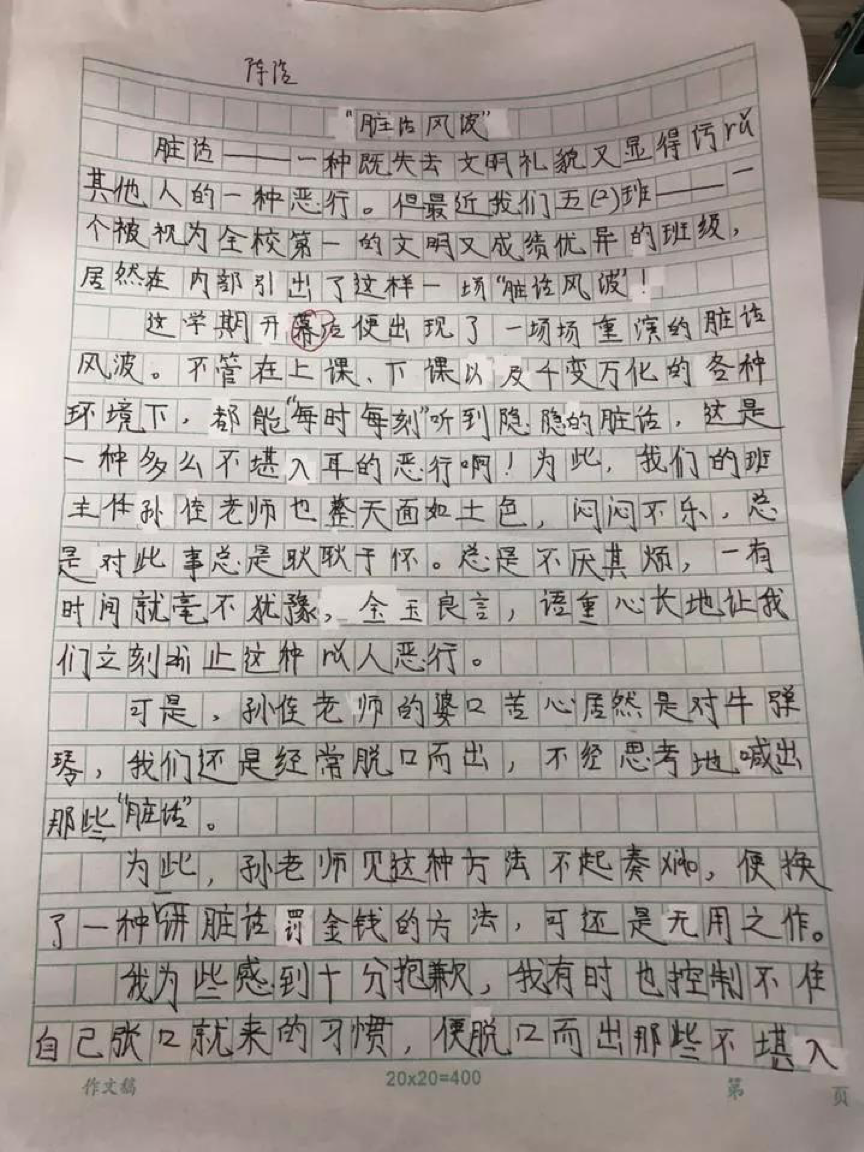 陈浩
“脏话风波”
脏话——一种既失去文明礼貌又显得污rǔ
其他人的一种恶行。但最近我们五(2)班——一
个被视为全校第一的文明又成绩优异的班级，
居然在内部引出了这样一场“脏话风波”！
这学期开幕后便出现了一场场重演的脏话
风波。不管在上课、下课以及千变万化的各种
环境下，都能“每时每刻”听到隐隐的脏话，这是
一种多么不堪入耳的恶行啊！为此，我们的班
主任孙佳老师也整天面如土色，闷闷不乐，总
是对此事总是耿耿于怀。总是不厌其烦，一有
时间就毫不犹豫，金玉良言，语重心长地让我
们立刻zhì止这种rǔ人恶行。
可是，孙佳老师的婆口苦心居然是对牛弹
琴，我们还是经常脱口而出，不经思考地喊出
那些“脏话”。
为此，孙老师见这种方法不起奏xiào，便换
了一种讲脏话罚金钱的方法，可还是无用之作。
我为些感到十分抱歉，我有时也控制不住
自己张口就来的习惯，便脱口而出那些不堪入
作文稿
20x20=400
第
页